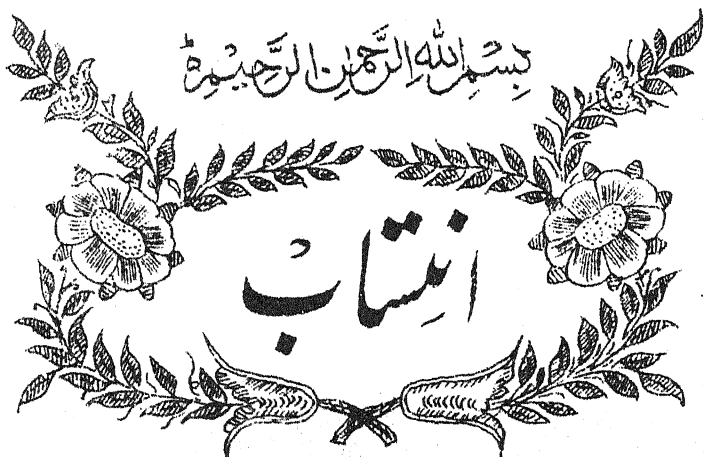 بِسْمِ اللهِ الرَّحْمٰنِ الرَّحِيْمِ ط
انتساب